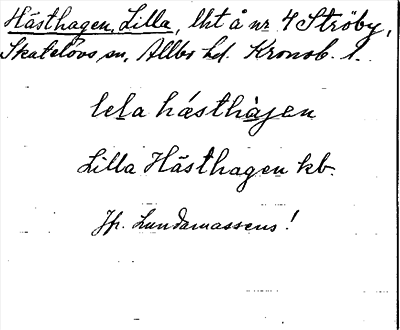 Hästhagen, Lilla, lht å nr 4 Ströby,
Skatelövs sn, Allbo hd. Kronob. l.
lela hásthàgen
Lilla Hästhagen kb.
Jfr. Lundamassens!